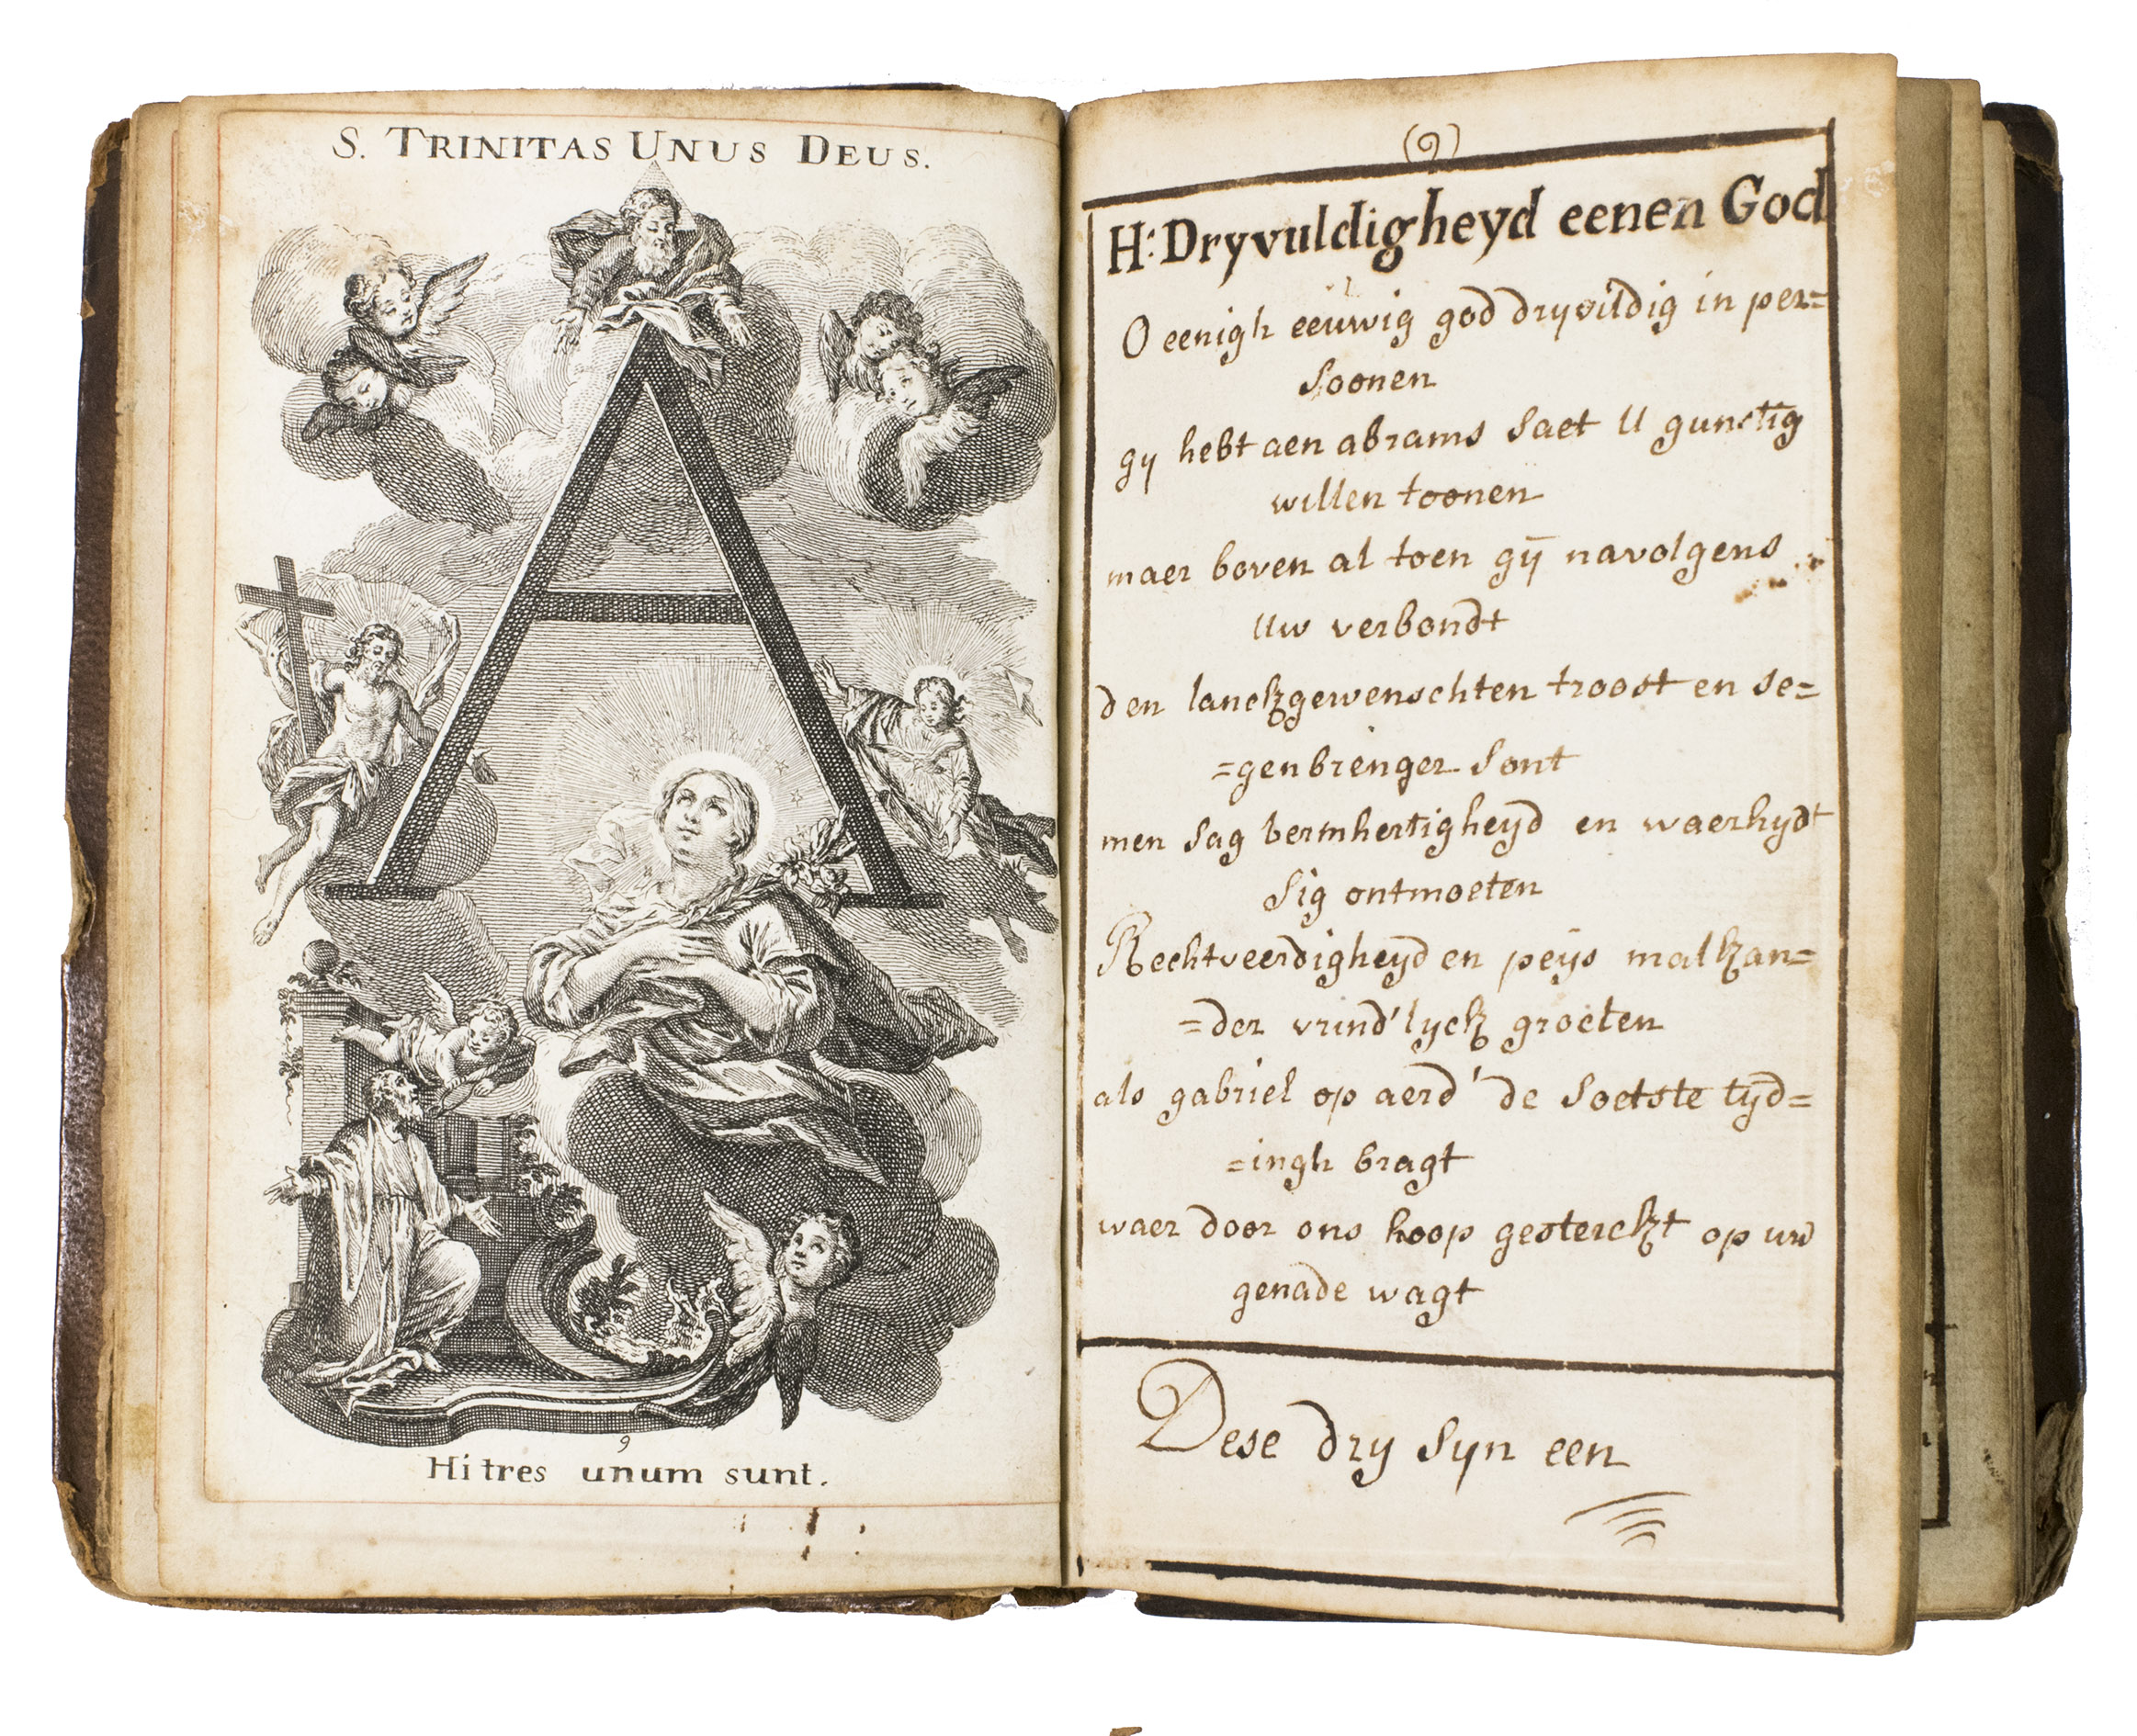 S. TRINITAS UNUS DEUS.
9
Hi tres unum sunt.
(9)
H: Dryvuldigheyd eenen God
O eenigh eeuwig god dryvildig in per=
soonen
gy hebt aen abrams saet U gunstig
willen toonen
maer boven al toen gij navolgens
Uw verbondt
den lanckgewenschten troost en se=
=genbrenger sont
men sag bermhertigheyd en waerhydt
sig ontmoeten
Rechtveerdigheyd en peijs malkan=
=der vrind'lyck groeten
als gabriel op aerd' de soetste tyd=
=ingh bragt
waer door ons hoop gesterckt op uw
genade wagt
Dese dry syn een